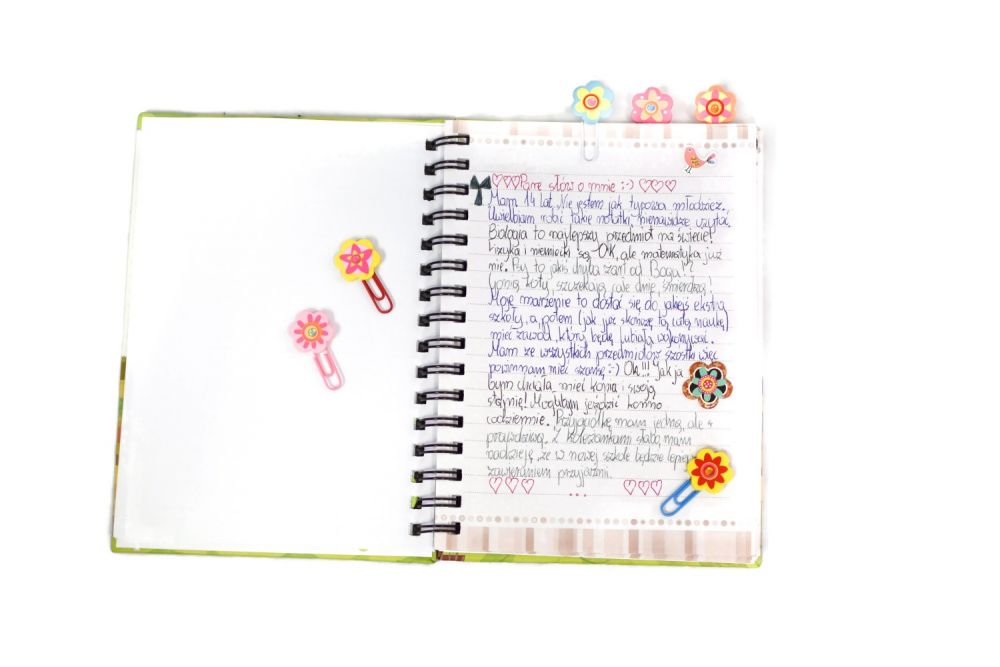 Parę słów o mnie :-)
Mam 14 lat. Nie jestem jak typowa młodzież.
Uwielbiam robić takie notatki, nienawidzę czytać.
Biologia to najlepszy przedmiot na świecie!
Fizyka i niemiecki są OK, ale matematyka już
nie. Psy to jakiś chyba żart od Boga!?
Gonią koty, szczekają całe dnie, śmierdzą!
Moje marzenie to dostać się do jakiejś ekstra
szkoły, a potem (jak już skończę tą całą naukę)
mieć zawód, który będę lubiała wykonywać.
Mam ze wszystkich przedmiotów szóstki więc
powinnam mieć szansę :-) Ok!!! Jak ja
bym chciała mieć konia i swoją
stajnię! Mogłabym jeździć konno
codziennie. Przyjaciółkę mam jedną, ale
prawdziwą. Z koleżankami słabo, mam
nadzieję, że w nowej szkole będzie lepiej z
zawieraniem przyjaźni.
...